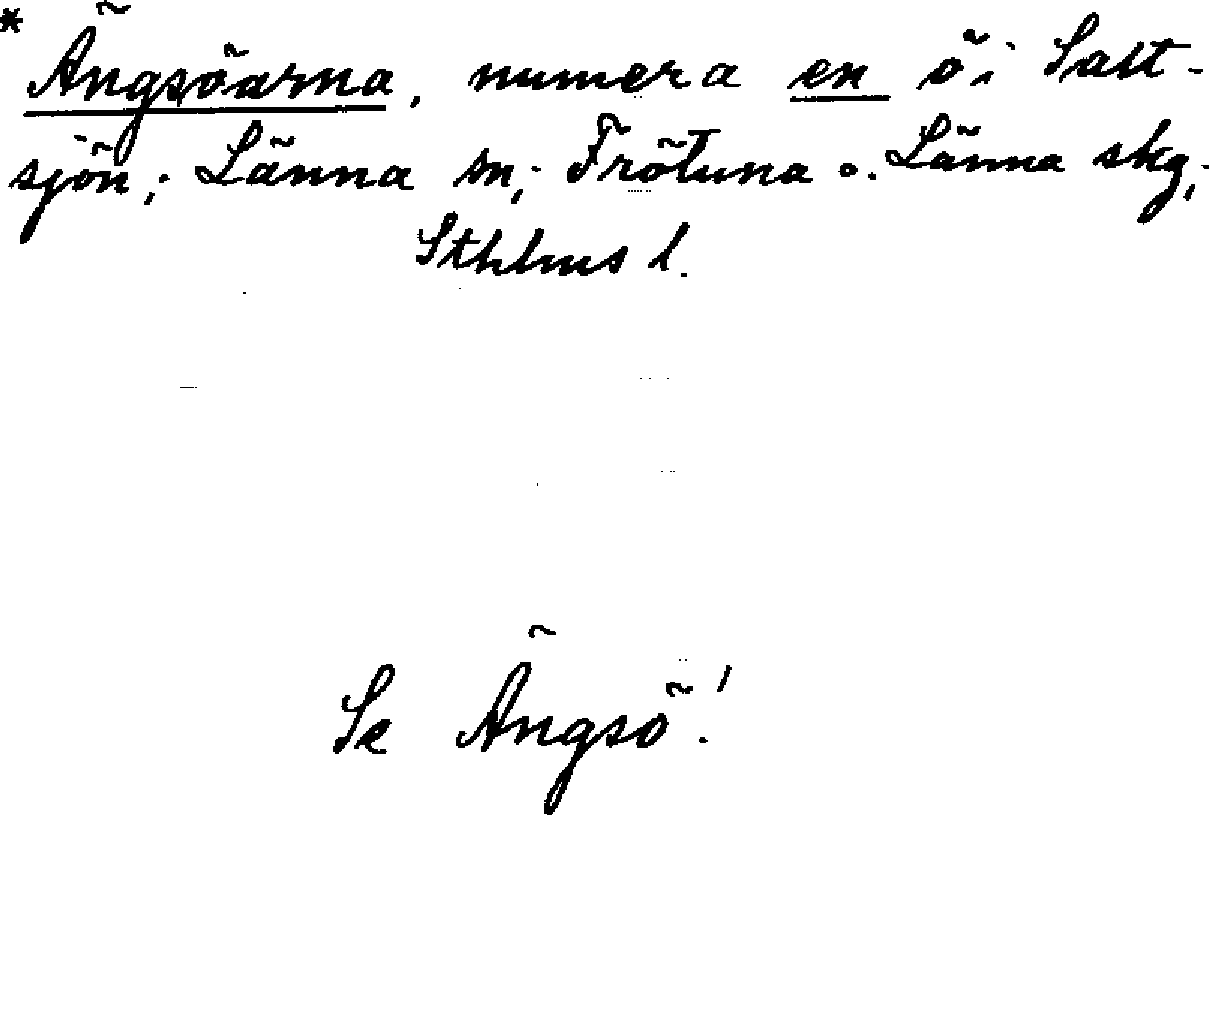 * Ängsöarna, numera en ö i Salt-
sjön; Länna sn; Frötuna o. Länna skg;
Sthlms l.
Se Ängsö!